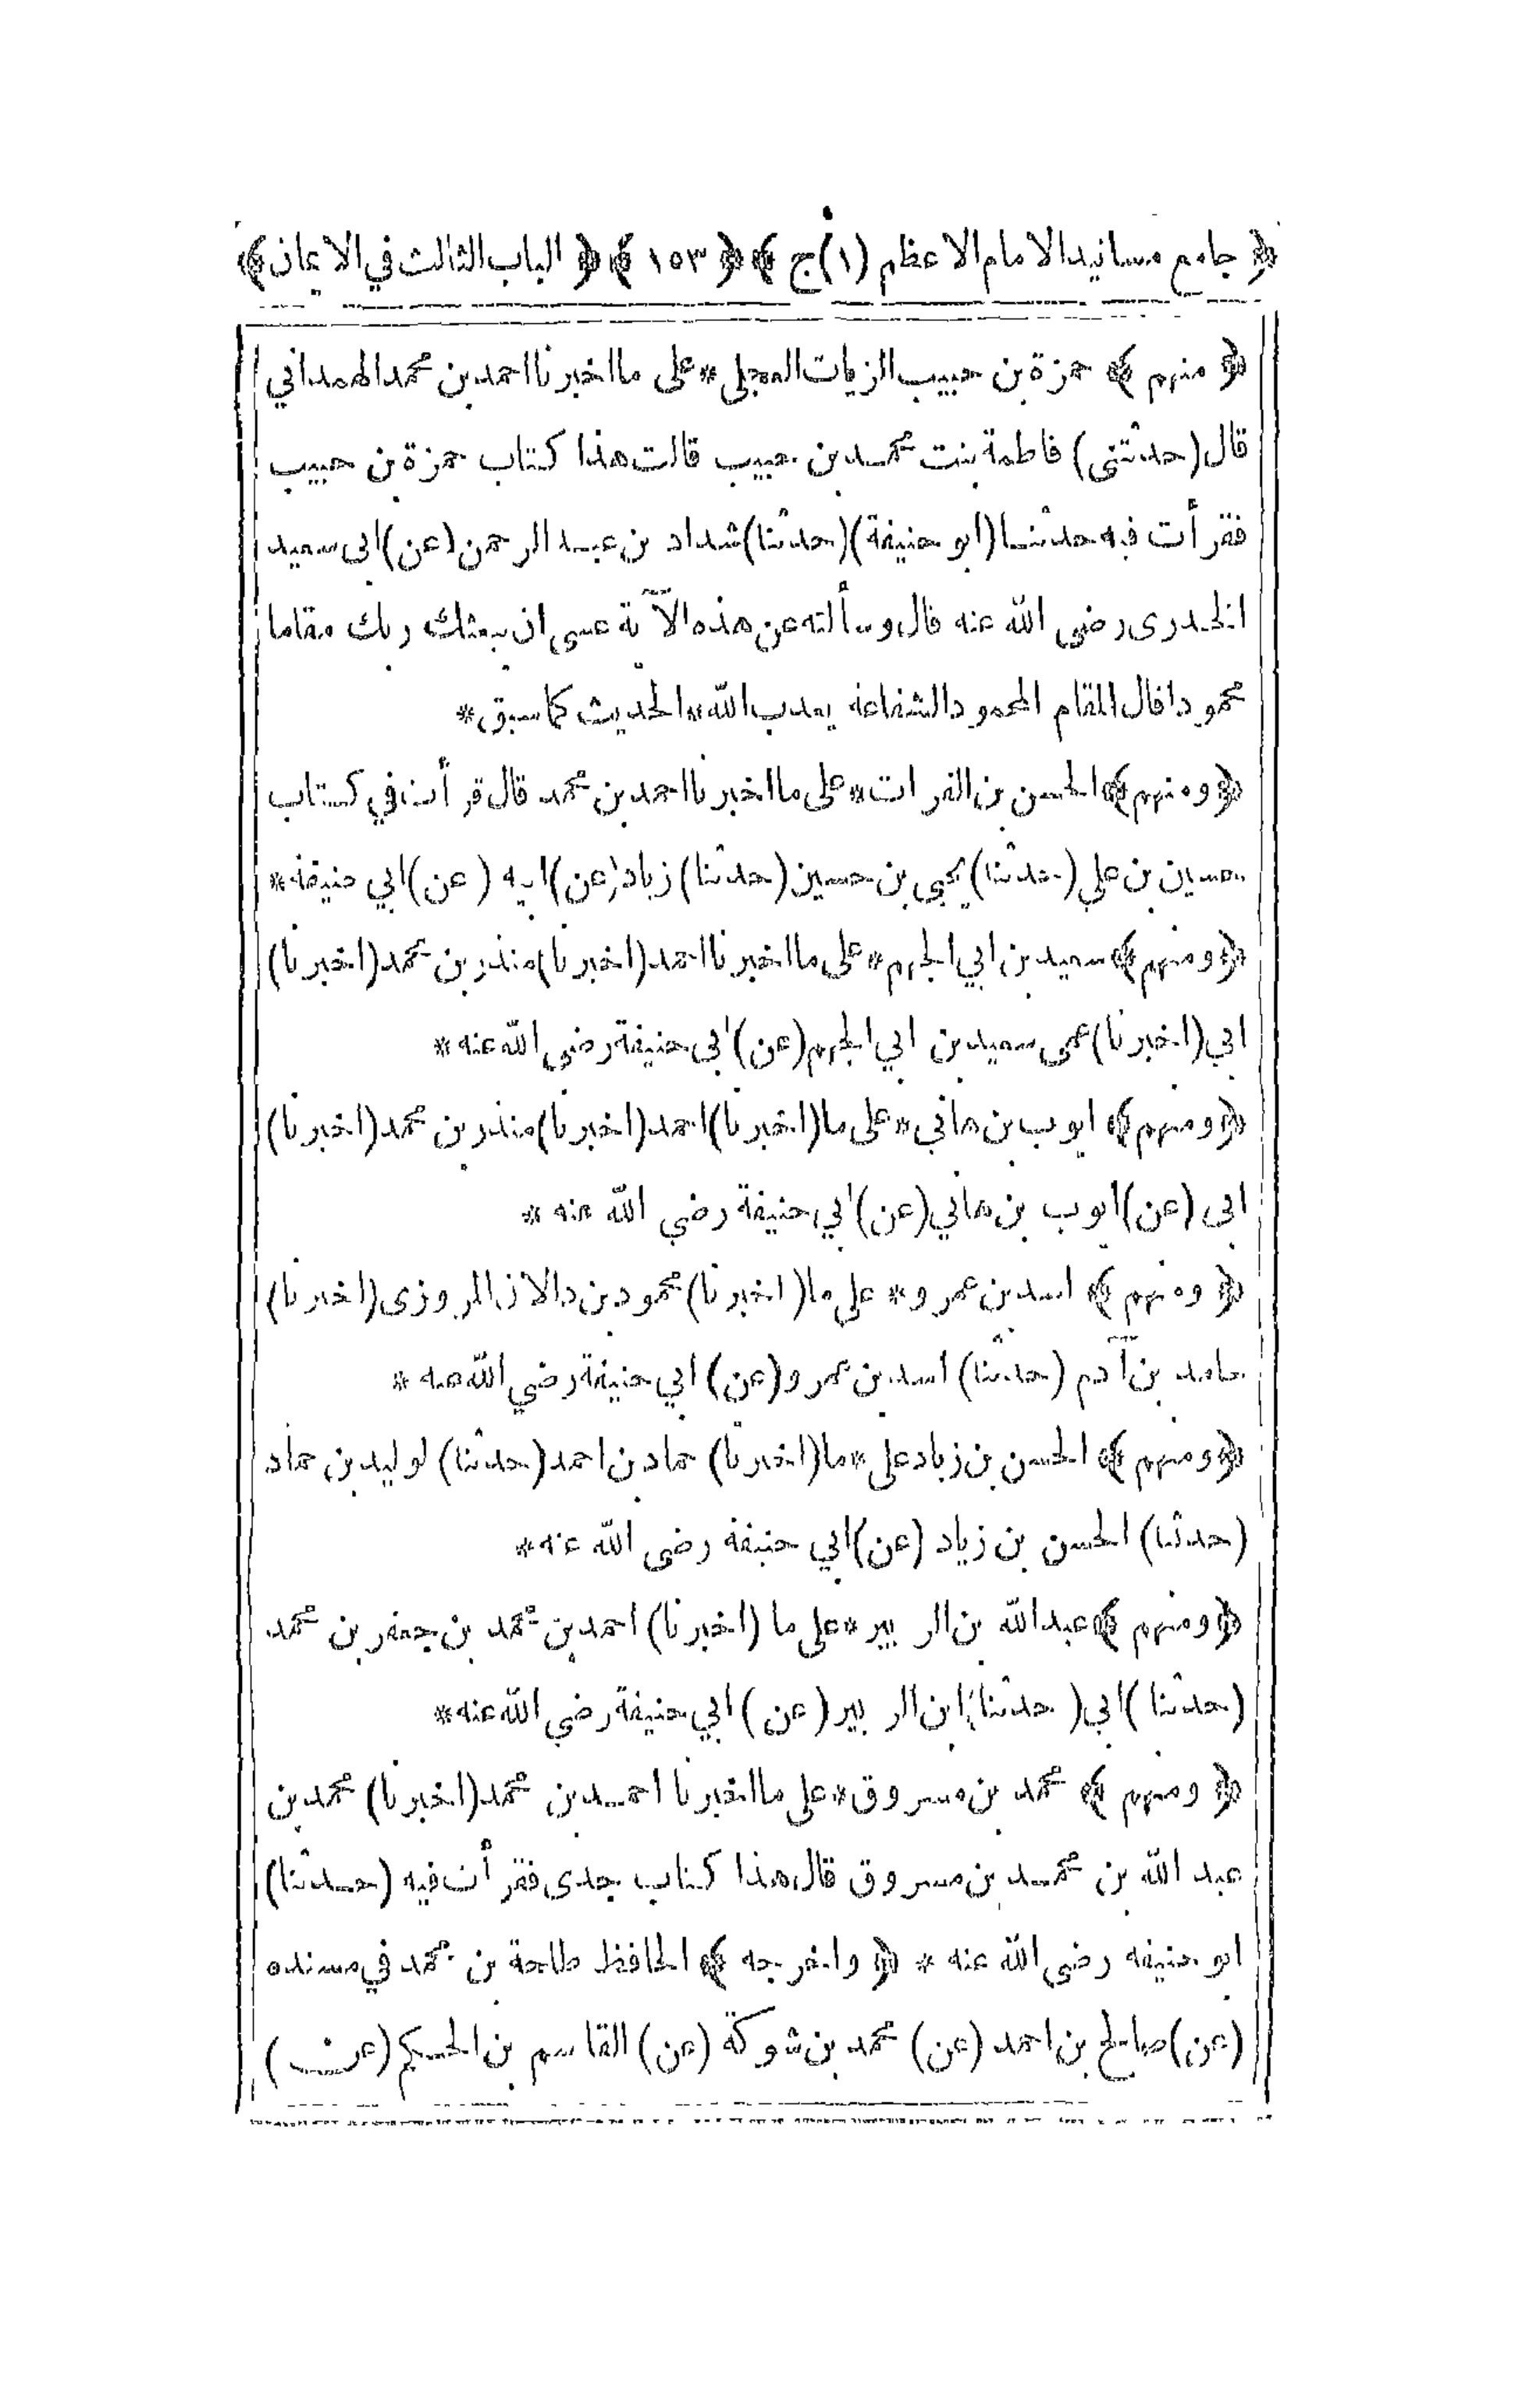 ﴿ جامع مسانيد الامام الاعظم (١)ج ﴾ ﴿ ١٥٣ ﴾ ﴿ الباب الثالث في الايمان ﴾
﴿ منهم ﴾ حمزة بن حبيب الزيات العجلي * على ما اخبرنا احمد بن محمد الهمداني
قال (حدثتني) فاطمة بنت محمد بن حبيب قالت هذا كتاب حمزة بن حبيب
فقرأت فيه حدثنا (ابو حنيفة) (حدثنا) شداد بن عبد الرحمن (عن) ابى سعيد
الخدرى رضى الله عنه قال وسألته عن هذه الآية عسى ان يبعثك ربك مقاما
محمودا قال المقام المحمود الشفاعة يعذب الله * الحديث كما سبق *
﴿ ومنهم ﴾ الحسن بن الفرات * على ما اخبرنا احمد بن محمد قال قرأت في كتاب
حسين بن علي (حدثنا) يحيى بن حسين (حدثنا) زياد (عن) ابيه (عن) ابي حنيفة *
﴿ ومنهم ﴾ سعيد بن ابي الجهم * على ما اخبرنا احمد (اخبرنا) منذر بن محمد (اخبرنا)
ابي (اخبرنا) عمى سعيد بن ابي الجهم (عن) ابى حنيفة رضى الله عنه *
﴿ ومنهم ﴾ ايوب بن هاني * على ما (اخبرنا) احمد (اخبرنا) منذر بن محمد (اخبرنا)
ابى (عن) ايوب بن هاني (عن) ابي حنيفة رضي الله عنه *
﴿ ومنهم ﴾ اسد بن عمرو * على ما (اخبرنا) محمود بن دالان المروزى (اخبرنا)
حامد بن آدم (حدثنا) اسد بن عمرو (عن) ابي حنيفة رضي الله عنه *
﴿ ومنهم ﴾ الحسن بن زياد على * ما (اخبرنا) حماد بن احمد (حدثنا) لوليد بن حماد
(حدثنا) الحسن بن زياد (عن) ابي حنيفة رضى الله عنه *
﴿ ومنهم ﴾ عبد الله بن الزبير * على ما (اخبرنا) احمد بن محمد بن جعفر بن محمد
(حدثنا) ابي (حدثنا) ابن الزبير (عن) ابي حنيفة رضى الله عنه *
﴿ ومنهم ﴾ محمد بن مسروق * على ما اخبرنا احمد بن محمد (اخبرنا) محمد بن
عبد الله بن محمد بن مسروق قال هذا كتاب جدى فقرأت فيه (حدثنا)
ابو حنيفه رضى الله عنه * ﴿ واخرجه ﴾ الحافظ طلحة بن محمد في مسنده
(عن) صالح بن احمد (عن) محمد بن شوكة (عن) القاسم بن الحكم (عن)